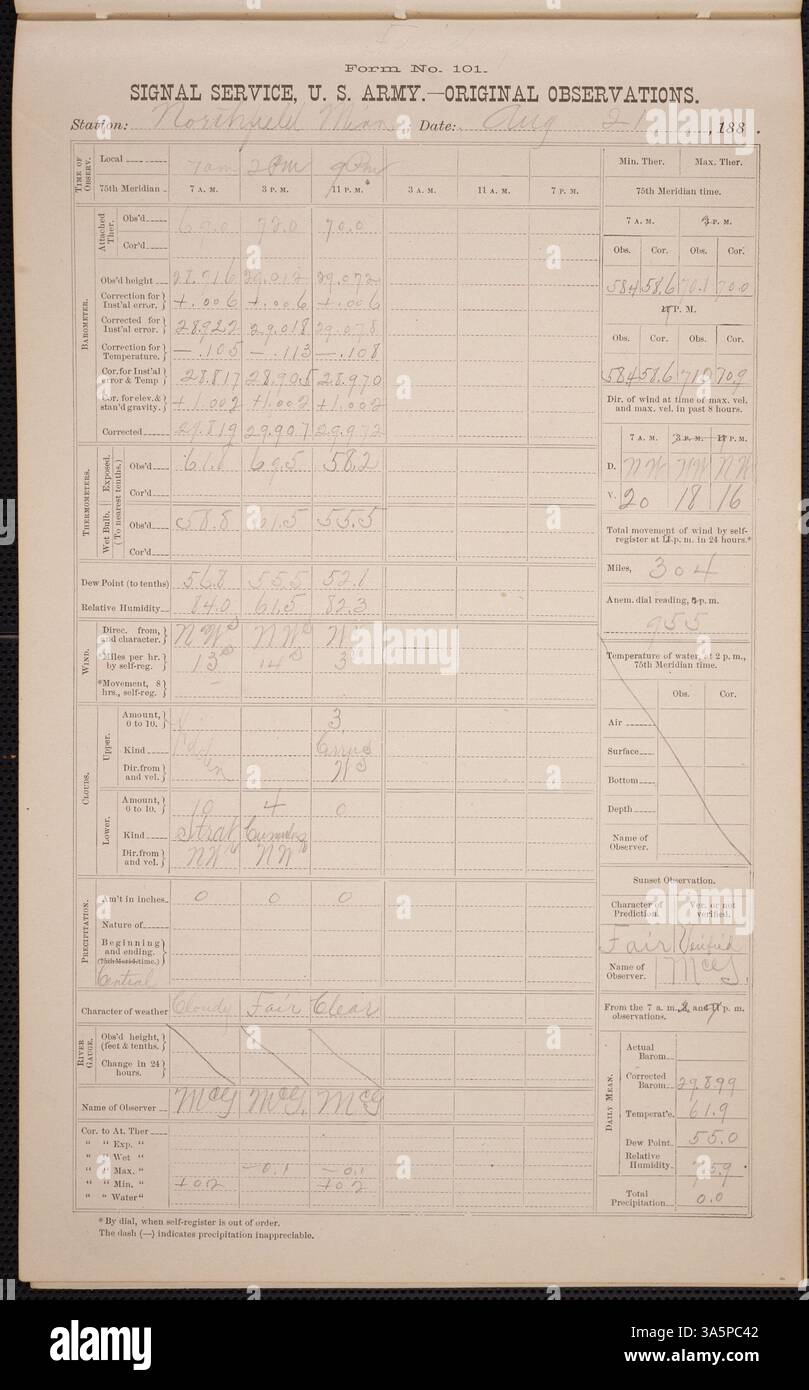 Form No. 101.
SIGNAL SERVICE, U. S. ARMY.—ORIGINAL OBSERVATIONS.
Station: Northfield Minn Date: Aug 21, 188 .
TIME OF OBSERV.
Local 7am 2Pm 9Pm
75th Meridian 7 A. M. 3 P. M. 11 P. M.* 3 A. M. 11 A. M. 7 P. M.
BAROMETER.
Attached Ther.
Obs'd 69.0 72.0 70.0
Cor'd
Obs'd height 28.916 29.012 29.072
Correction for Inst'al error, +.006 +.006 +.006
Corrected for Inst'al error. 28.922 29.018 29.078
Correction for Temperature. —.105 —.113 —.108
Cor. for Inst'al error & Temp 28.817 28.905 28.970
Cor. for elev. & stan'd gravity. +1.002 +1.002 +1.002
Corrected 29.819 29.907 29.972
THERMOMETERS.
Exposed.
(To nearest tenths.)
Obs'd 61.8 69.5 58.2
Cor'd
Wet Bulb.
Obs'd 58.8 61.5 55.5
Cor'd
Dew Point (to tenths) 56.8 55.5 52.1
Relative Humidity 84.0 61.5 82.3
WIND.
Direc. from, and character. NW NW W
Miles per hr. by self-reg. 13 14 3
*Movement, 8 hrs., self-reg. —
CLOUDS.
Upper.
Amount, 0 to 10. 3
Kind Cirrus
Dir. from and vel. W
Lower.
Amount, 0 to 10. 10 4 0
Kind Strat Cumulus
Dir. from and vel. NW NW
PRECIPITATION.
Am't in inches. 0 0 0
Nature of
Beginning and ending. (75th Merid. time.)
Central
Character of weather Cloudy Fair Clear
RIVER GAUGE.
Obs'd height, (feet & tenths.
Change in 24 hours.
Name of Observer McG McG. McG
Cor. to At. Ther
" " Exp. "
" " Wet "
" " Max. " —0.1 —0.1
" " Min. " +0.2 +0.2
" " Water "
* By dial, when self-register is out of order.
The dash (—) indicates precipitation inappreciable.
Min. Ther. Max. Ther.
75th Meridian time.
7 A. M. 3 P. M.
Obs. Cor. Obs. Cor.
58.4 58.6 70.1 70.0
11 P. M.
Obs. Cor. Obs. Cor.
58.4 58.6 71.0 70.9
Dir. of wind at time of max. vel. and max. vel. in past 8 hours.
7 A. M. 3 P. M. 11 P. M.
D. NW NW NW
V. 20 18 16
Total movement of wind by self-register at 11 p. m. in 24 hours.*
Miles, 304
Anem. dial reading, p. m.
955
Temperature of water, at 2 p. m., 75th Meridian time.
Obs. Cor.
Air
Surface
Bottom
Depth
Name of Observer.
Sunset Observation.
Character of Prediction. Ver. or not verified.
Fair Verified
Name of Observer. McG.
From the 7 a. m., 2, and 9 p. m. observations.
DAILY MEAN.
Actual Barom.
Corrected Barom. 29.899
Temperat'e. 61.9
Dew Point. 55.0
Relative Humidity. 75.9
Total Precipitation. 0.0
alamy
Image ID: 3A5PC42
www.alamy.com